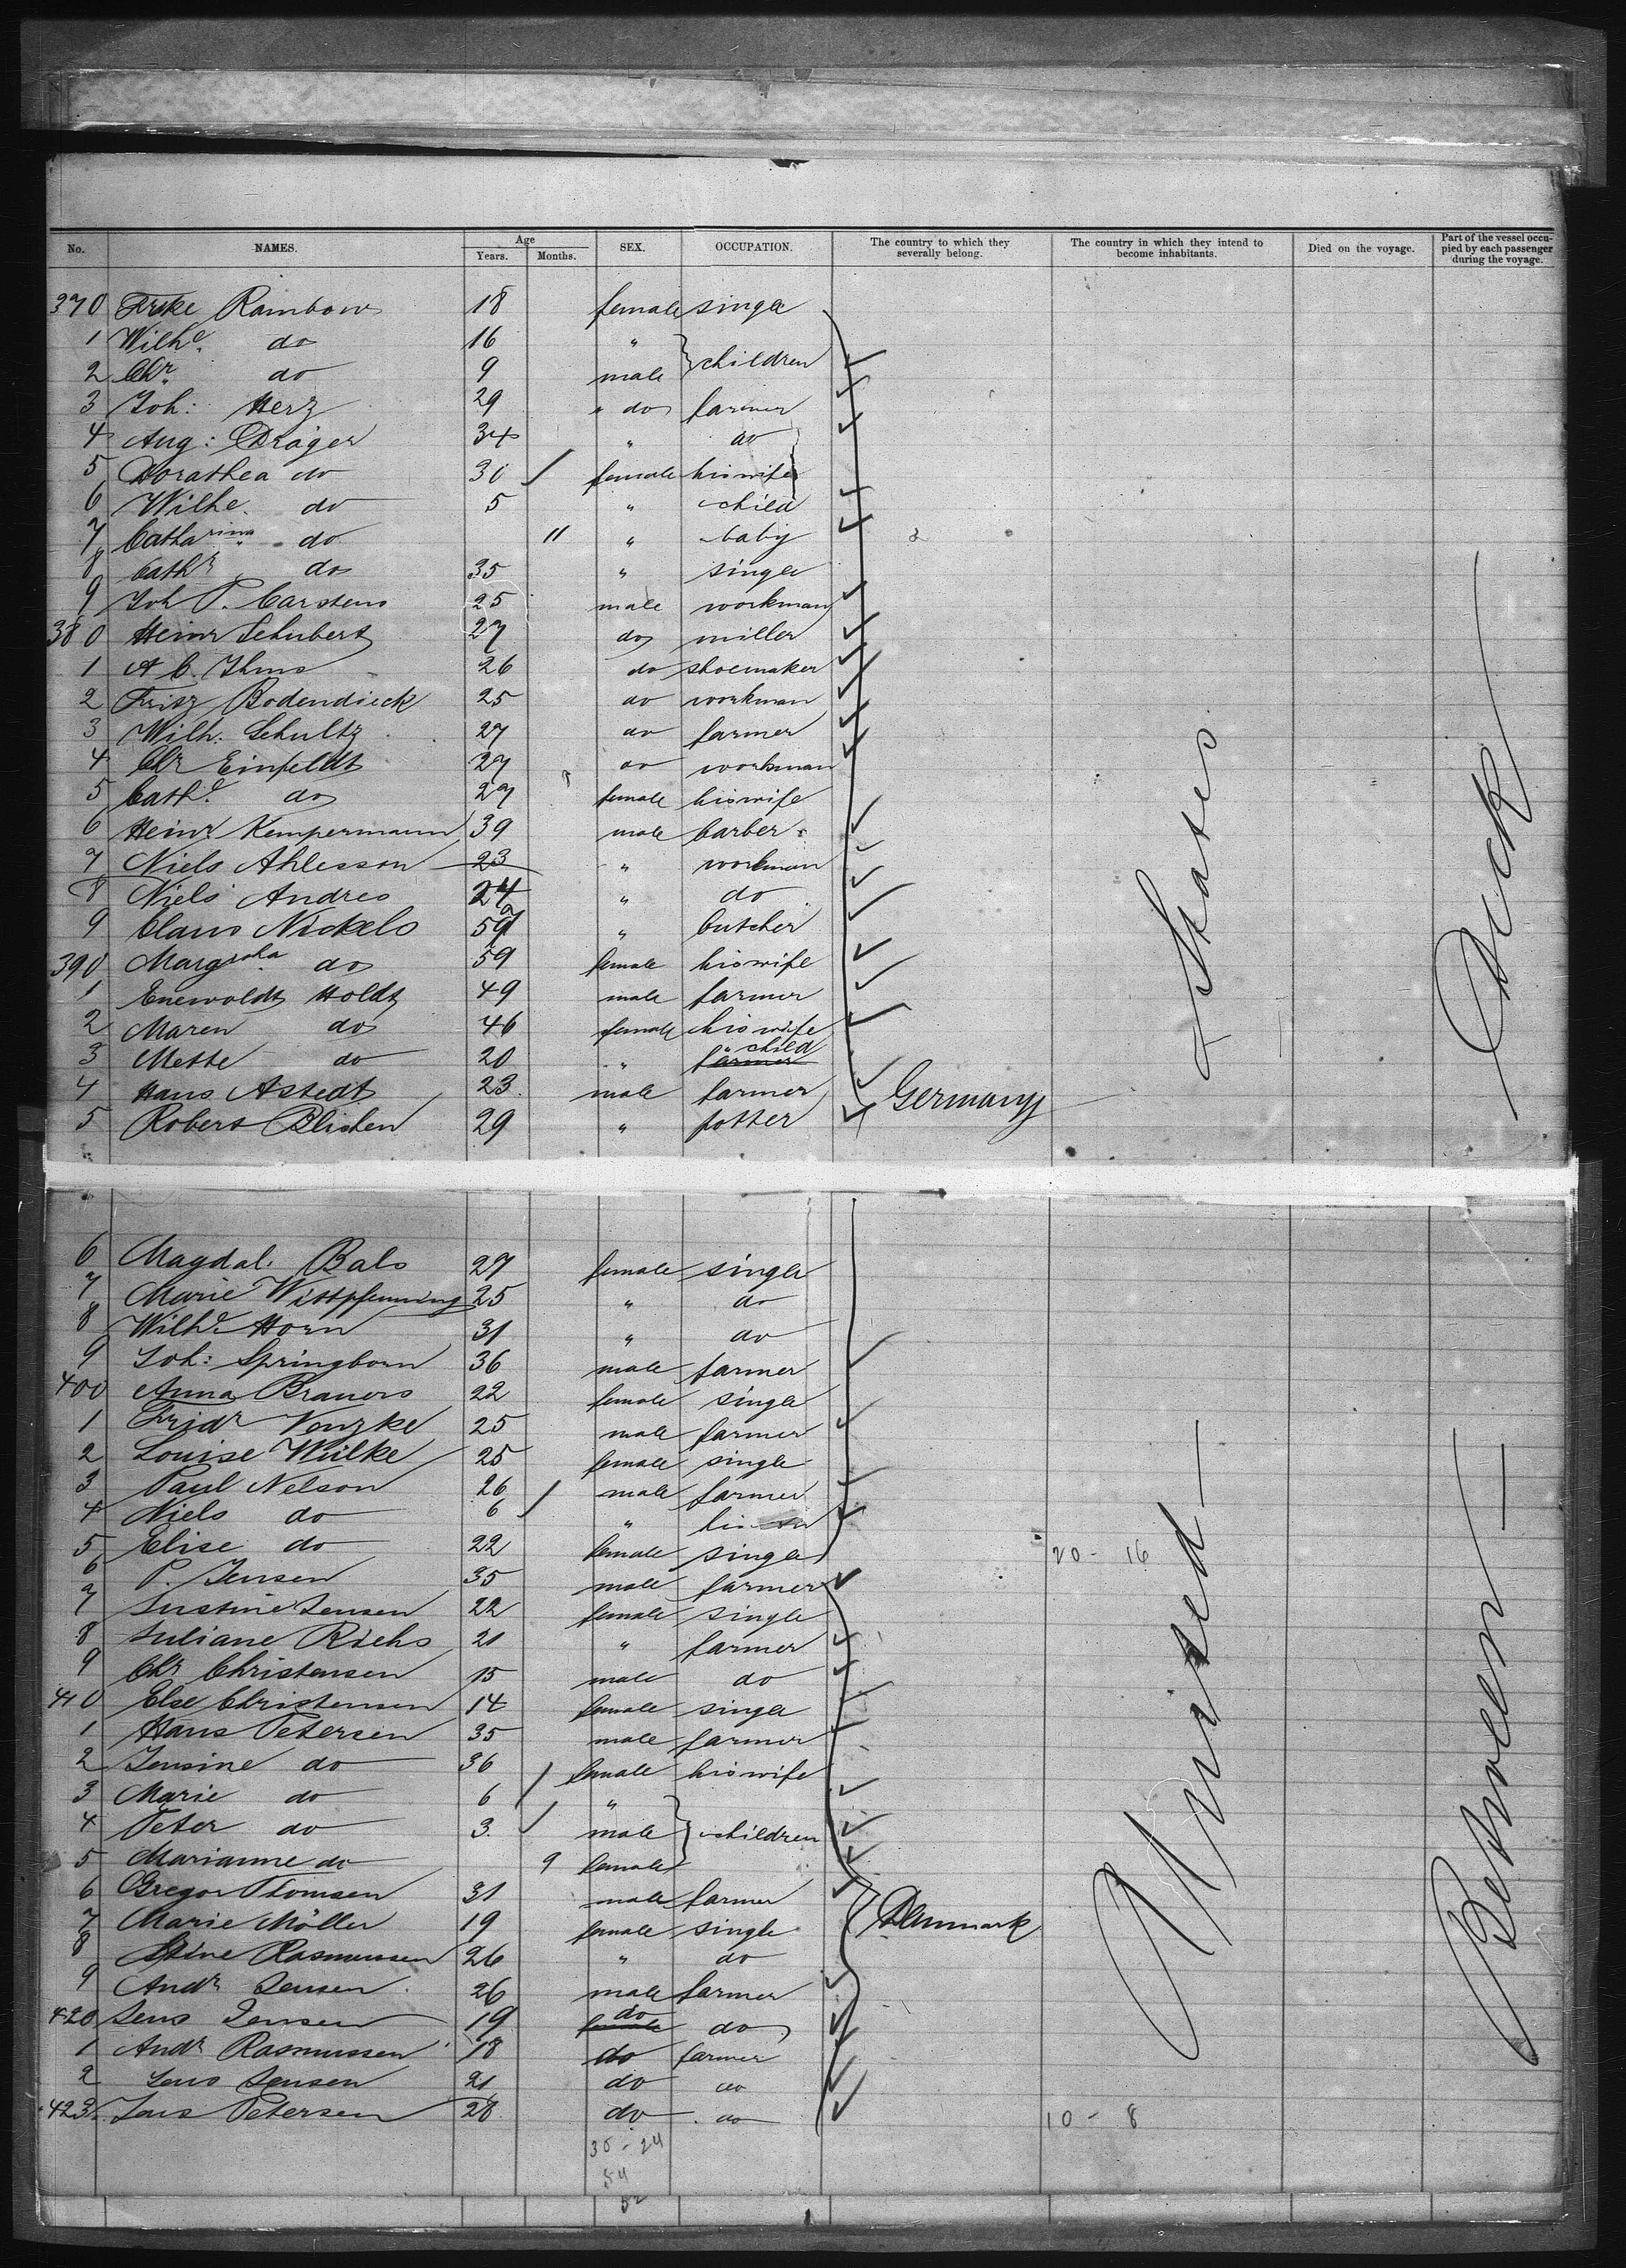 No. NAMES. Age Years. Months. SEX. OCCUPATION. The country to which they severally belong. The country in which they intend to become inhabitants. Died on the voyage. Part of the vessel occupied by each passenger during the voyage.
370 Rambow 18 female single
1 Wilhe. do 16 " children
2 Chr. do 9 male
3 Joh: Herz 29 " do farmer
4 Aug: Dräger 34 " do
5 Dorathea do 30 / female his wife
6 Wilhe. do 5 " child
7 Catharina do 11 " baby
8 Cathr do 35 " single
9 Joh P. Carstens 25 male workman
380 Heinr Schubert 27 do miller
1 A C. Thms 26 do shoemaker
2 Fritz Bodendieck 25 do workman
3 Wilh. Schultz 27 do farmer
4 Chr Einfeldt 27 do workman
5 Cathe. do 27 female his wife
6 Heinr Kempermann 39 male barber
7 Niels Ahlesson 23 " workman
8 Niels Andres 24 " do
9 Claus Nickels 59 " butcher
390 Margretha do 59 female his wife
1 Enewoldt Holdt 49 male farmer
2 Maren do 46 female his wife
3 Mette do 20 " " child farmer
4 Hans Astedt 23 male farmer Germany
5 Robert Blishen 29 " potter
6 Magdal. Bals 27 female single
7 Marie Wittpfenning 25 " do
8 Wilhe. Horn 31 " do
9 Joh: Springborn 36 male farmer
400 Anna Brauers 22 female single
1 Fridr Venzke 25 male farmer
2 Louise Wülke 25 female single
3 Paul Nelson 26 / male farmer
4 Niels do 6 " his son
5 Elise do 22 female single 20 - 16
6 P. Jensen 35 male farmer
7 Justine Jensen 22 female single
8 Juliane Riehs 21 " farmer
9 Chr Christensen 15 male do
410 Else Christensen 14 female single
1 Hans Petersen 35 male farmer
2 Jensine do 36 / female his wife
3 Marie do 6 "
4 Peter do 3. / male children
5 Marianne do 9 female
6 Gregor Thomsen 31 male farmer
7 Marie Möller 19 female single Denmark
8 Stine Rasmussen 26 " do
9 Andr Jensen 26 male farmer
420 Jens Jensen 19 female do do
1 Andr Rasmussen 18 do farmer
2 Jens Jensen 21 do do
423 Jens Petersen 28 do do 10 - 8
30 - 24
54
52
United States
Between Deck